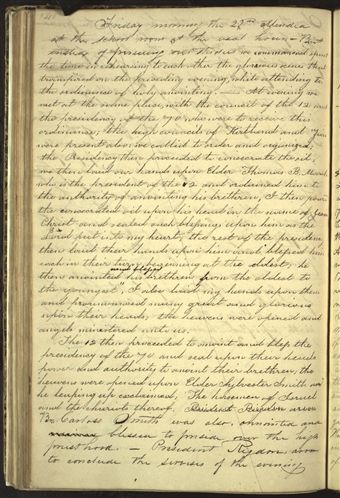 Friday morning the 22nd Attended
at the school room at the usual hour,—But
instead of pursuing our studies we commenced spent
the time in rehearsing to each other the glorious scenes that
transpired on the preceding evening, while attending to
the ordinance of holy anointing.— At evening we
met at the same place, with the council of the 12 and
the presidency of the 70 who were to receive this
ordinance; the high councils of Kirtland and Zion
were present also; we called to order and organized;
the Presidency then proceeded to consecrate the oil;
we then laid our hands upon Elder Thomas B. Marsh
who is the president of the 12 and ordained him to
the authority of anointing his brethren, I then poured
the consecrated oil upon his head in the name of Jesus
Christ and sealed such blessings upon him as the
Lord put into my heart; the rest of the presidency
then laid their hands upon him and blessed him
each in their turn beginning at the eldest; he
then anointed and blessed his brethren from the oldest to
the youngest, I also laid my hands upon them
and pronounced many great and glorious
upon their heads; the heavens were opened and
angels ministered unto us.
The 12 then proceeded to anoint and bless the
presidency of the 70 and seal upon their heads
power and authority to anoint their brethren; the
heavens were opened upon Elder Sylvester Smith and
he leaping up exclaimed, The horsemen of Israel
and the chariots thereof. President Rigdon arose
Br. Carloss Smith was also, annointed and
blessed to preside over the high
priesthood.— President Rigdon, arose
to conclude the services of the evening